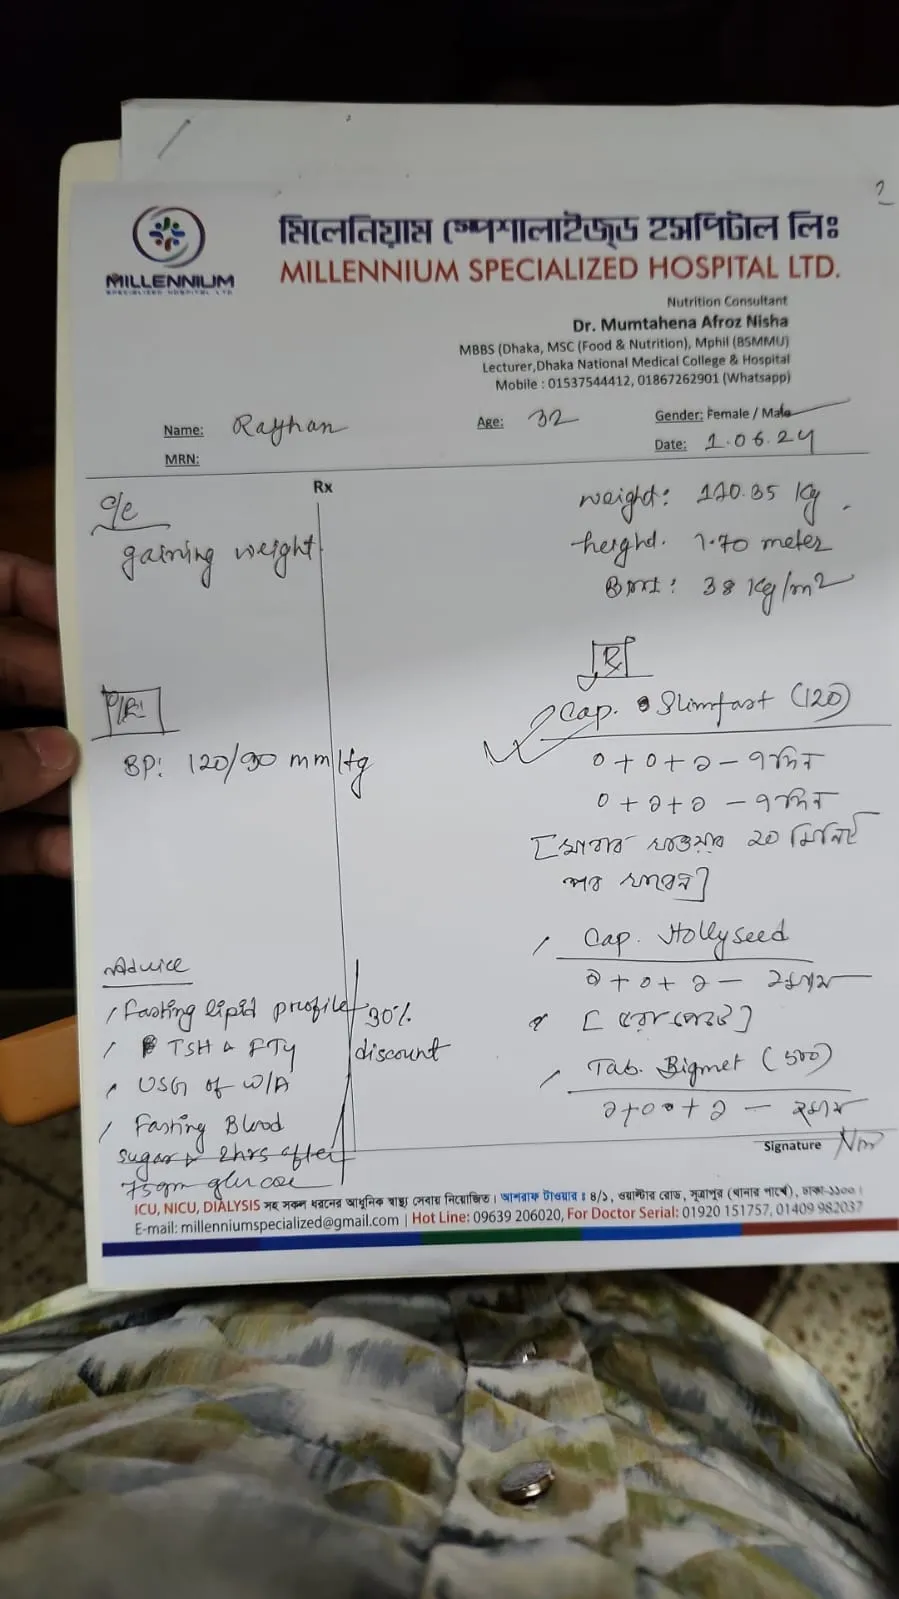 2
মিলেনিয়াম স্পেশালাইজ্ড হসপিটাল লিঃ
MILLENNIUM SPECIALIZED HOSPITAL LTD.
MILLENNIUM
SPECIALIZED HOSPITAL LTD.
Nutrition Consultant
Dr. Mumtahena Afroz Nisha
MBBS (Dhaka, MSC (Food & Nutrition), Mphil (BSMMU)
Lecturer,Dhaka National Medical College & Hospital
Mobile : 01537544412, 01867262901 (Whatsapp)
Name: Rayhan Age: 32 Gender: Female / Male
MRN: Date: 1.06.24
Rx
C/C
gaining weight
BP: 120/90 mmHg
Advice
Fasting lipid profile
TSH & FT4
USG of W/A
Fasting Blood
sugar & 2hrs after
75gm glucose
30%
discount
weight: 110.35 kg
height. 1.70 meter
BMI: 38 kg/m2
Rx
Cap. Slimfast (120)
০ + ০ + ১ – ৭ দিন
০ + ১ + ১ – ৭ দিন
[খাবার খাওয়ার ২০ মিনিট
পর খাবেন]
Cap. Hollyseed
১ + ০ + ১ – ২মাস
[ভরা পেটে]
Tab. Bigmet (500)
১ + ০ + ১ –
Signature
ICU, NICU, DIALYSIS সহ সকল ধরনের আধুনিক স্বাস্থ্য সেবায় নিয়োজিত। আশরাফ টাওয়ার ঃ ৪/১, ওয়াল্টার রোড, সূত্রাপুর (থানার পার্শ্বে), ঢাকা-১১০০।
E-mail: millenniumspecialized@gmail.com | Hot Line: 09639 206020, For Doctor Serial: 01920 151757, 01409 982037